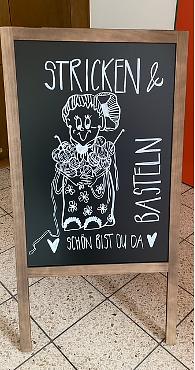 STRICKEN &
BASTELN
SCHÖN BIST DU DA